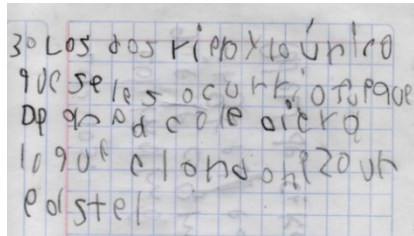 30 Los dos rieroy lo único
que se les ocurrio fue que
De an a d cole dicra
lo que clondo nl zo un
pastel